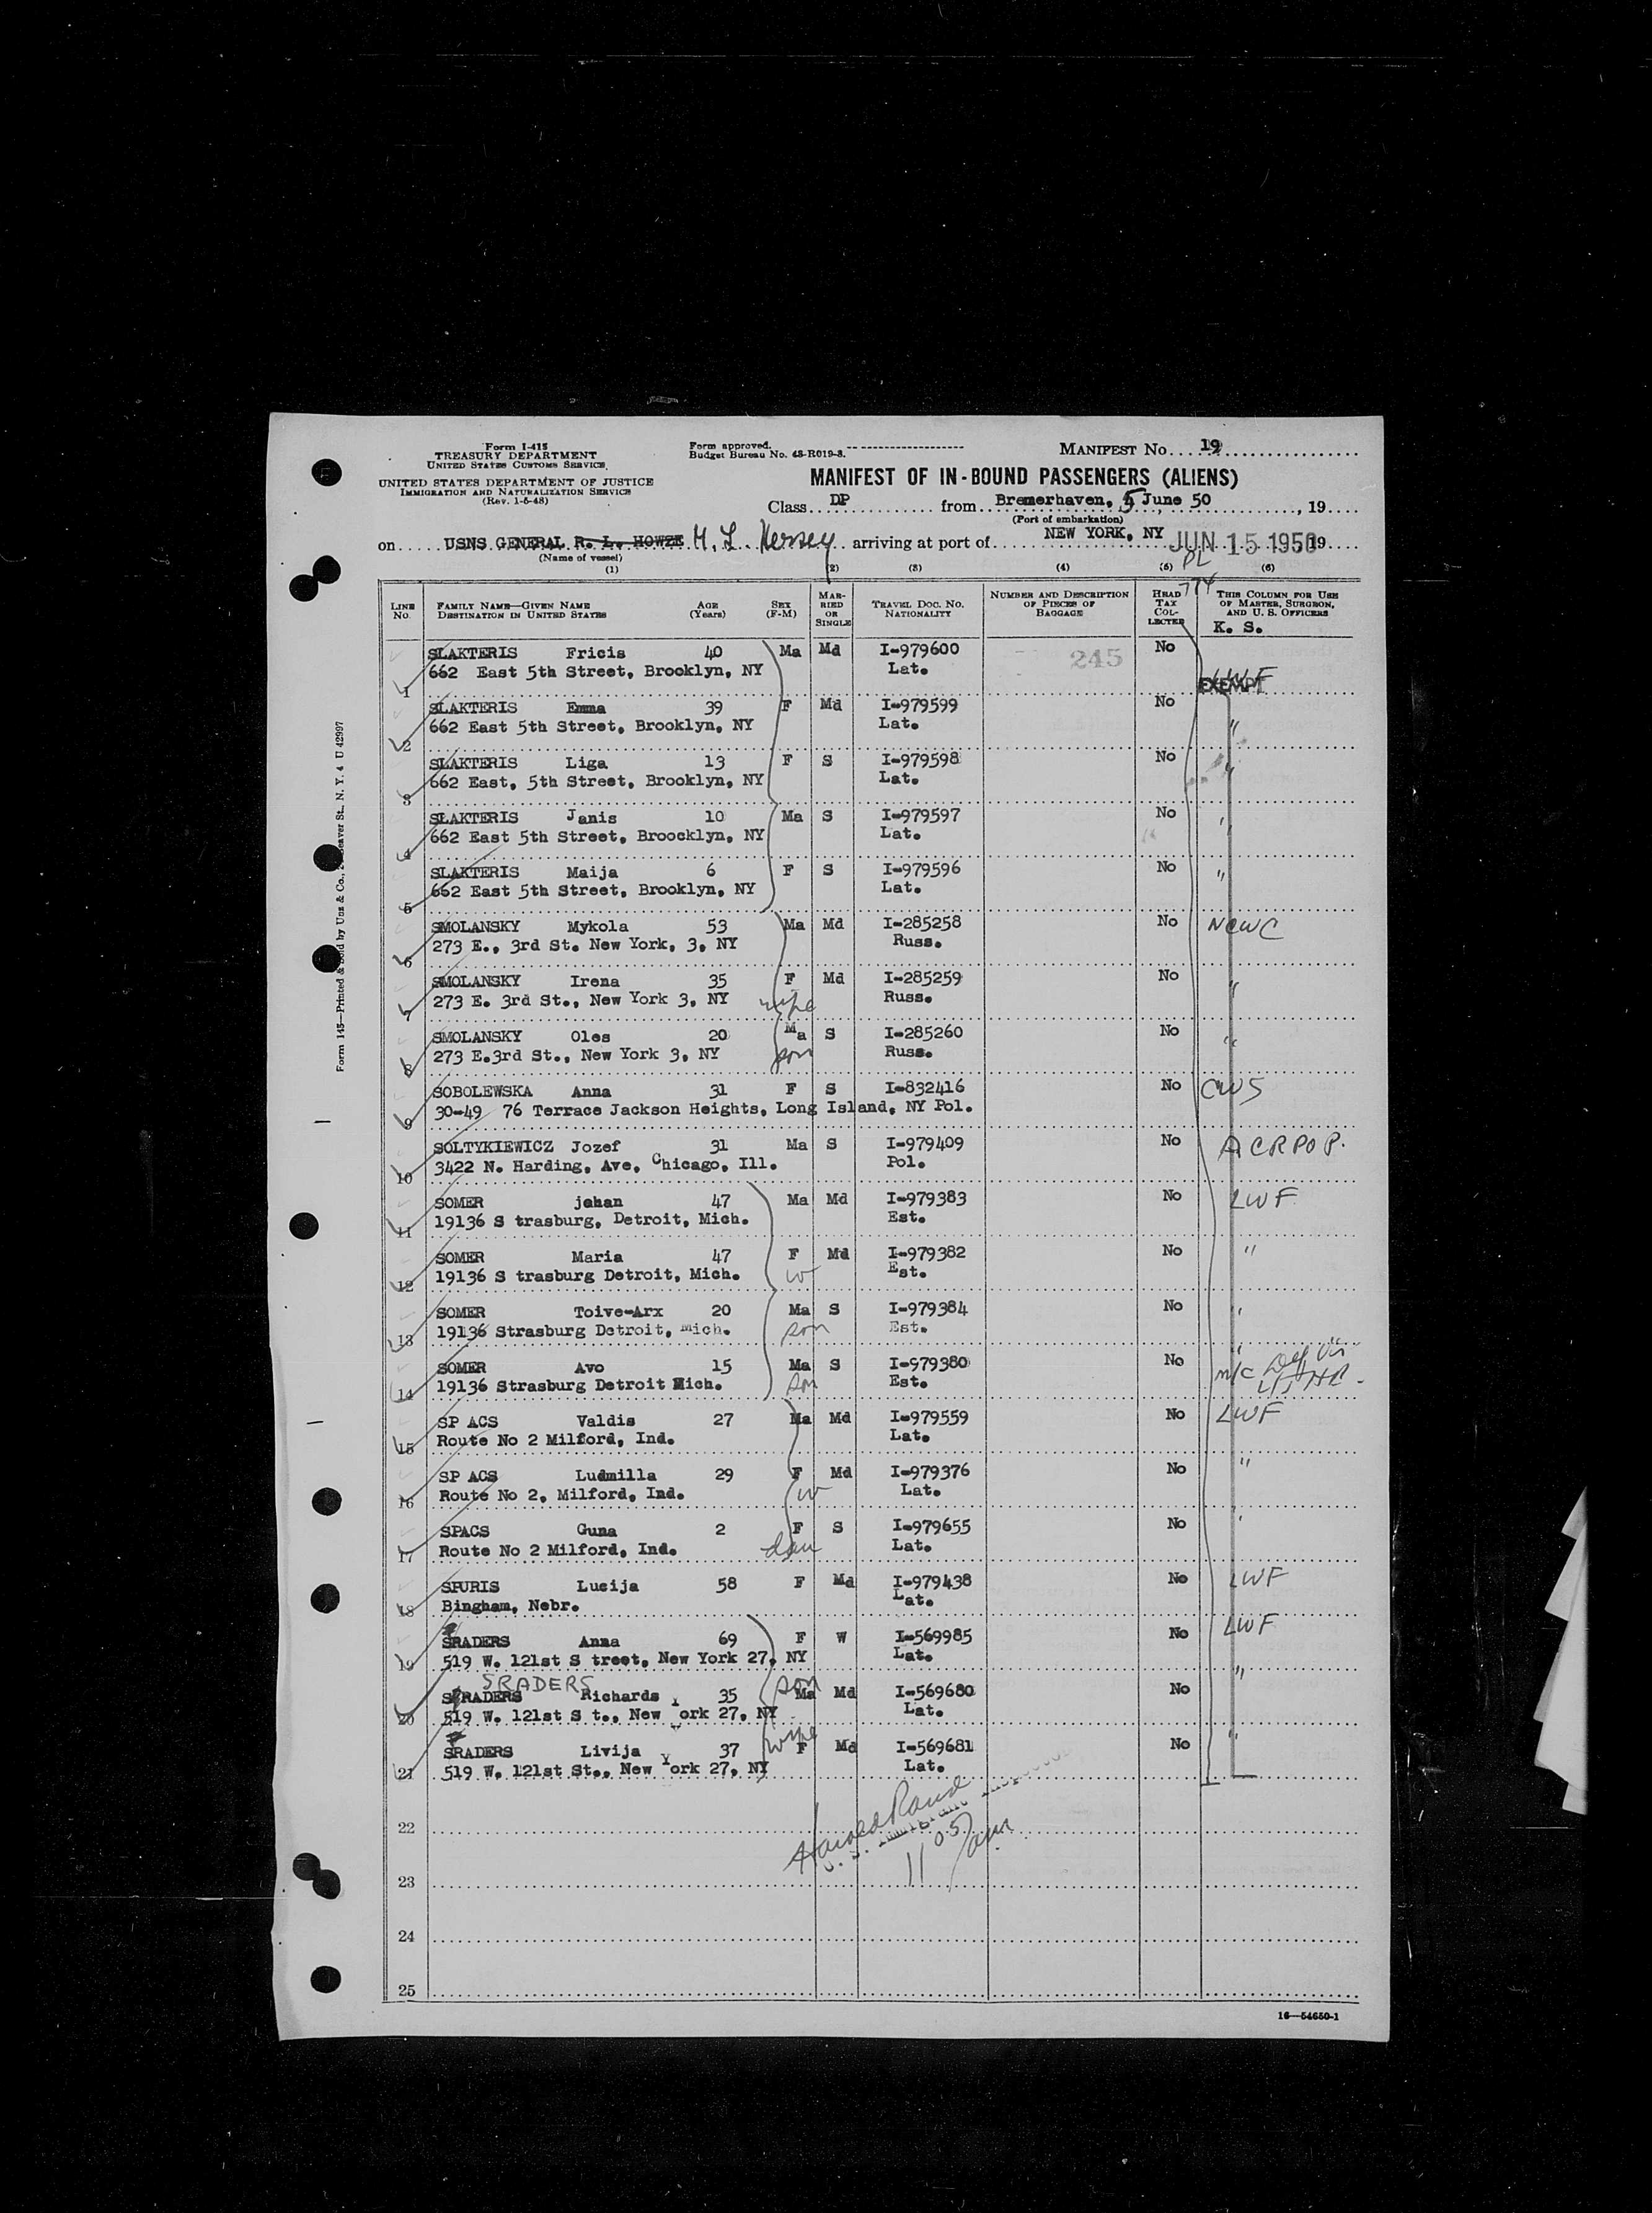 Form I-415
TREASURY DEPARTMENT
UNITED STATES CUSTOMS SERVICE
UNITED STATES DEPARTMENT OF JUSTICE
IMMIGRATION AND NATURALIZATION SERVICE
(Rev. 1-5-48)
Form approved.
Budget Bureau No. 43-R019-3.
MANIFEST No. 19
MANIFEST OF IN-BOUND PASSENGERS (ALIENS)
Class DP from Bremerhaven, 5 June 50, 19
(Port of embarkation)
on USNS GENERAL R. L. HOWZE M. L. Hersey arriving at port of NEW YORK, NY JUN 15 1950 19
(Name of vessel)
PL
(1) (2) (3) (4) (5) (6)
774
LINE No. FAMILY NAME—GIVEN NAME DESTINATION IN UNITED STATES AGE (Years) SEX (F-M) MARRIED OR SINGLE TRAVEL DOC. NO. NATIONALITY NUMBER AND DESCRIPTION OF PIECES OF BAGGAGE HEAD TAX COLLECTED THIS COLUMN FOR USE OF MASTER, SURGEON, AND U. S. OFFICERS
K. S.
SLAKTERIS Fricis 40 Ma Md I-979600 245 No
1 662 East 5th Street, Brooklyn, NY Lat. EXEMPT LWF
SLAKTERIS Emma 39 F Md I-979599 No
2 662 East 5th Street, Brooklyn, NY Lat. "
SLAKTERIS Liga 13 F S I-979598 No
3 662 East, 5th Street, Brooklyn, NY Lat. "
SLAKTERIS Janis 10 Ma S I-979597 No
4 662 East 5th Street, Broocklyn, NY Lat. "
SLAKTERIS Maija 6 F S I-979596 No
5 662 East 5th Street, Brooklyn, NY Lat. "
SMOLANSKY Mykola 53 Ma Md I-285258 No NCWC
6 273 E., 3rd St. New York, 3, NY Russ.
SMOLANSKY Irena 35 F Md I-285259 No
7 273 E. 3rd St., New York 3, NY wife Russ. "
SMOLANSKY Oles 20 Ma S I-285260 No
8 273 E.3rd St., New York 3, NY son Russ. "
SOBOLEWSKA Anna 31 F S I-832416 No CWS
9 30-49 76 Terrace Jackson Heights, Long Island, NY Pol.
SOLTYKIEWICZ Jozef 31 Ma S I-979409 No ACRPOP.
10 3422 N. Harding, Ave, Chicago, Ill. Pol.
SOMER jehan 47 Ma Md I-979383 No LWF
11 19136 S trasburg, Detroit, Mich. Est.
SOMER Maria 47 F Md I-979382 No "
12 19136 S trasburg Detroit, Mich. w Est.
SOMER Toive-Arx 20 Ma S I-979384 No "
13 19136 Strasburg Detroit, Mich. son Est.
SOMER Avo 15 Ma S I-979380 No "
14 19136 Strasburg Detroit Mich. son Est. m/c
SP ACS Valdis 27 Ma Md I-979559 No LWF
15 Route No 2 Milford, Ind. Lat.
SP ACS Ludmilla 29 F Md I-979376 No "
16 Route No 2, Milford, Ind. w Lat.
SPACS Guna 2 F S I-979655 No "
17 Route No 2 Milford, Ind. dau Lat.
SPURIS Lucija 58 F Md I-979438 No LWF
18 Bingham, Nebr. Lat.
SRADERS Anna 69 F W I-569985 No LWF
19 519 W. 121st S treet, New York 27, NY Lat.
SRADERS
SRADERS Richards 35 son Ma Md I-569680 No "
20 519 W. 121st S t., New York 27, NY Lat.
SRADERS Livija 37 wife F Md I-569681 No "
21 519 W. 121st St., New York 27, NY Lat.
Harold Rand
U. S. Immigrant Inspector
11 05 am
22
23
24
25
16—54650-1
Form 115—Printed & Sold by Unz & Co., Beaver St., N. Y. 4 U 42997